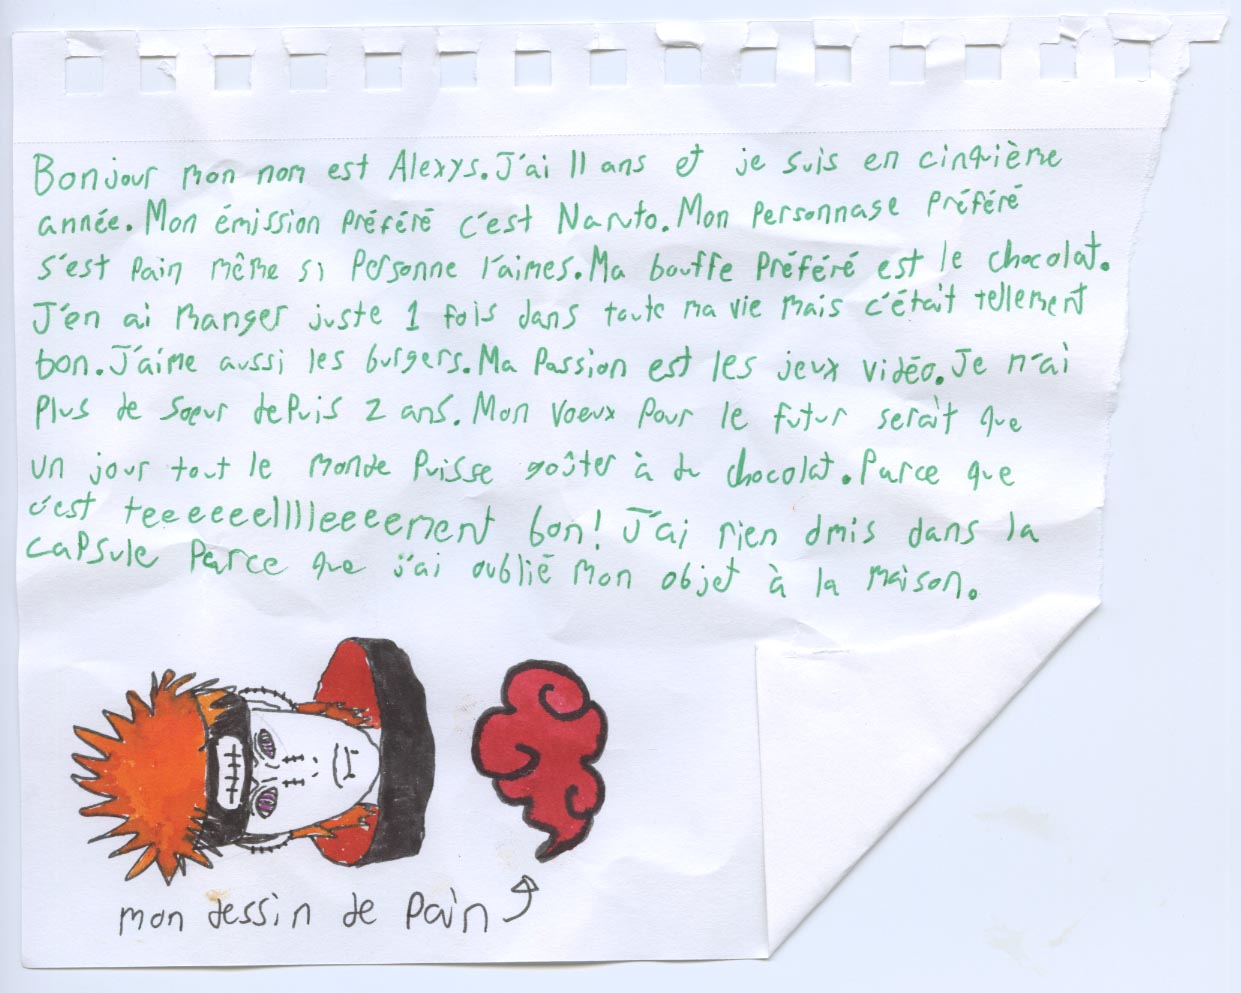 Bonjour mon nom est Alexys. J'ai 11 ans et je suis en cinquième
année. Mon émission préféré c'est Naruto. Mon personnage préféré
s'est Pain même si personne l'aimes. Ma bouffe préféré est le chocolat.
J'en ai manger juste 1 fois dans toute ma vie mais c'était tellement
bon. J'aime aussi les burgers. Ma passion est les jeux vidéo. Je n'ai
plus de sœur depuis 2 ans. Mon voeux pour le futur serait que
un jour tout le monde puisse goûter à du chocolat. Parce que
c'est teeeeeellllleeeement bon! J'ai rien dmis dans la
capsule parce que j'ai oublié mon objet à la maison.
mon dessin de Pain